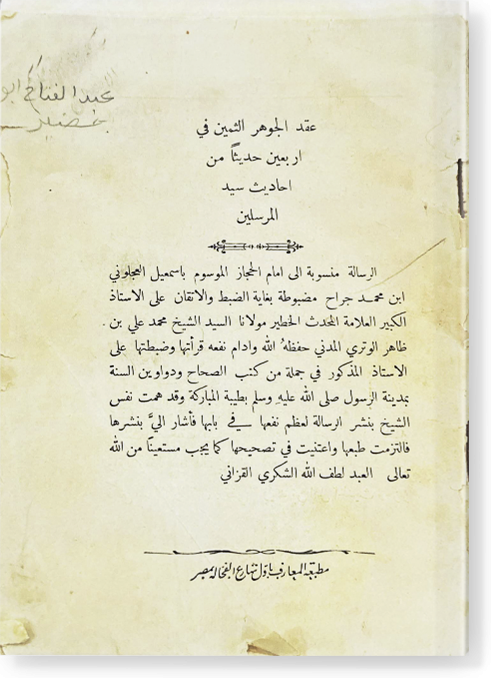 عبد الفتاح ابو
عقد الجوهر الثمين في
اربعين حديثًا من
احاديث سيد
المرسلين
الرسالة منسوبة الى امام الحجاز الموسوم باسمعيل العجلوني
ابن محمد جراح مضبوطة بغاية الضبط والاتقان على الاستاذ
الكبير العلامة المحدث الخطير مولانا السيد الشيخ محمد علي بن
ظاهر الوتري المدني حفظهُ الله وادام نفعه قرأتها وضبطتها على
الاستاذ المذكور في جملة من كتب الصحاح ودواوين السنة
بمدينة الرسول صلى الله عليه وسلم بطيبة المباركة وقد همت نفس
الشيخ بنشر الرسالة لعظم نفعها في بابها فأشار اليَّ بنشرها
فالتزمت طبعها واعتنيت في تصحيحها كما يجب مستعينًا من الله
تعالى العبد لطف الله الشكري القزاني
مطبعة المعارف باول شارع الفجالة بمصر